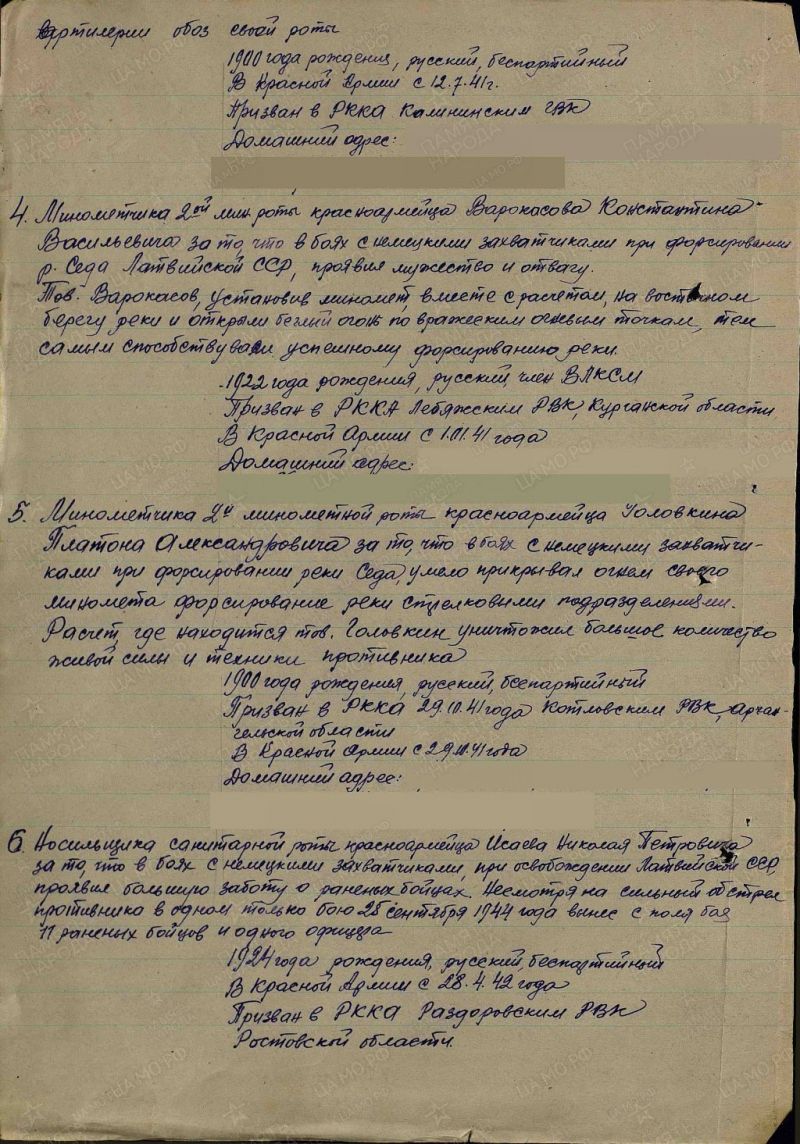 артилерии обоз своей роты
1900 года рождения, русский, беспартийный
В Красной Армии с 12.7.41г.
Призван в РККА Калининским ГВК
Домашний адрес:
4. Минометчика 2ой мин роты красноармейца Варокасова Константина
Васильевича за то, что в боях с немецкими захватчиками при форсировании
р. Седа Латвийской ССР, проявил мужество и отвагу.
Тов. Варокасов, установив миномет, вместе с расчетом, на восточном
берегу реки и открыли беглый огонь по вражеским огневым точкам, тем
самым способствували успешному форсированию реки.
1922 года рождения, русский член ВЛКСМ
Призван в РККА Лебяжским РВК, Курганской области
В Красной Армии с 1.01.41 года
Домашний адрес:
5. Минометчика 2й минометной роты красноармейца Головкина
Платона Александровича за то, что в боях с немецкими захватчи-
ками при форсировании реки Седа, умело прикрывал огнем своего
миномета форсирование реки стрелковыми подразделениями.
Расчет, где находится тов. Головкин уничтожил большое количество
живой силы и техники противника
1900 года рождения, русский, беспартийный
Призван в РККА 29.10.41 года Котловским РВК, Архан-
гельской области
В Красной Армии с 29.10.41 года
Домашний адрес:
6. Носильщика санитарной роты красноармейца Исаева Николая Петровича
за то, что в боях с немецкими захватчиками, при освобождении Латвийской ССР,
проявил большую заботу о раненых бойцах. Несмотря на сильный обстрел
противника в одном только бою 25 сентября 1944 года вынес с поля боя
11 раненых бойцов и одного офицера
1924 года рождения, русский, беспартийный
В Красной Армии с 28.4.42 года
Призван в РККА Раздоровским РВК
Ростовской области.